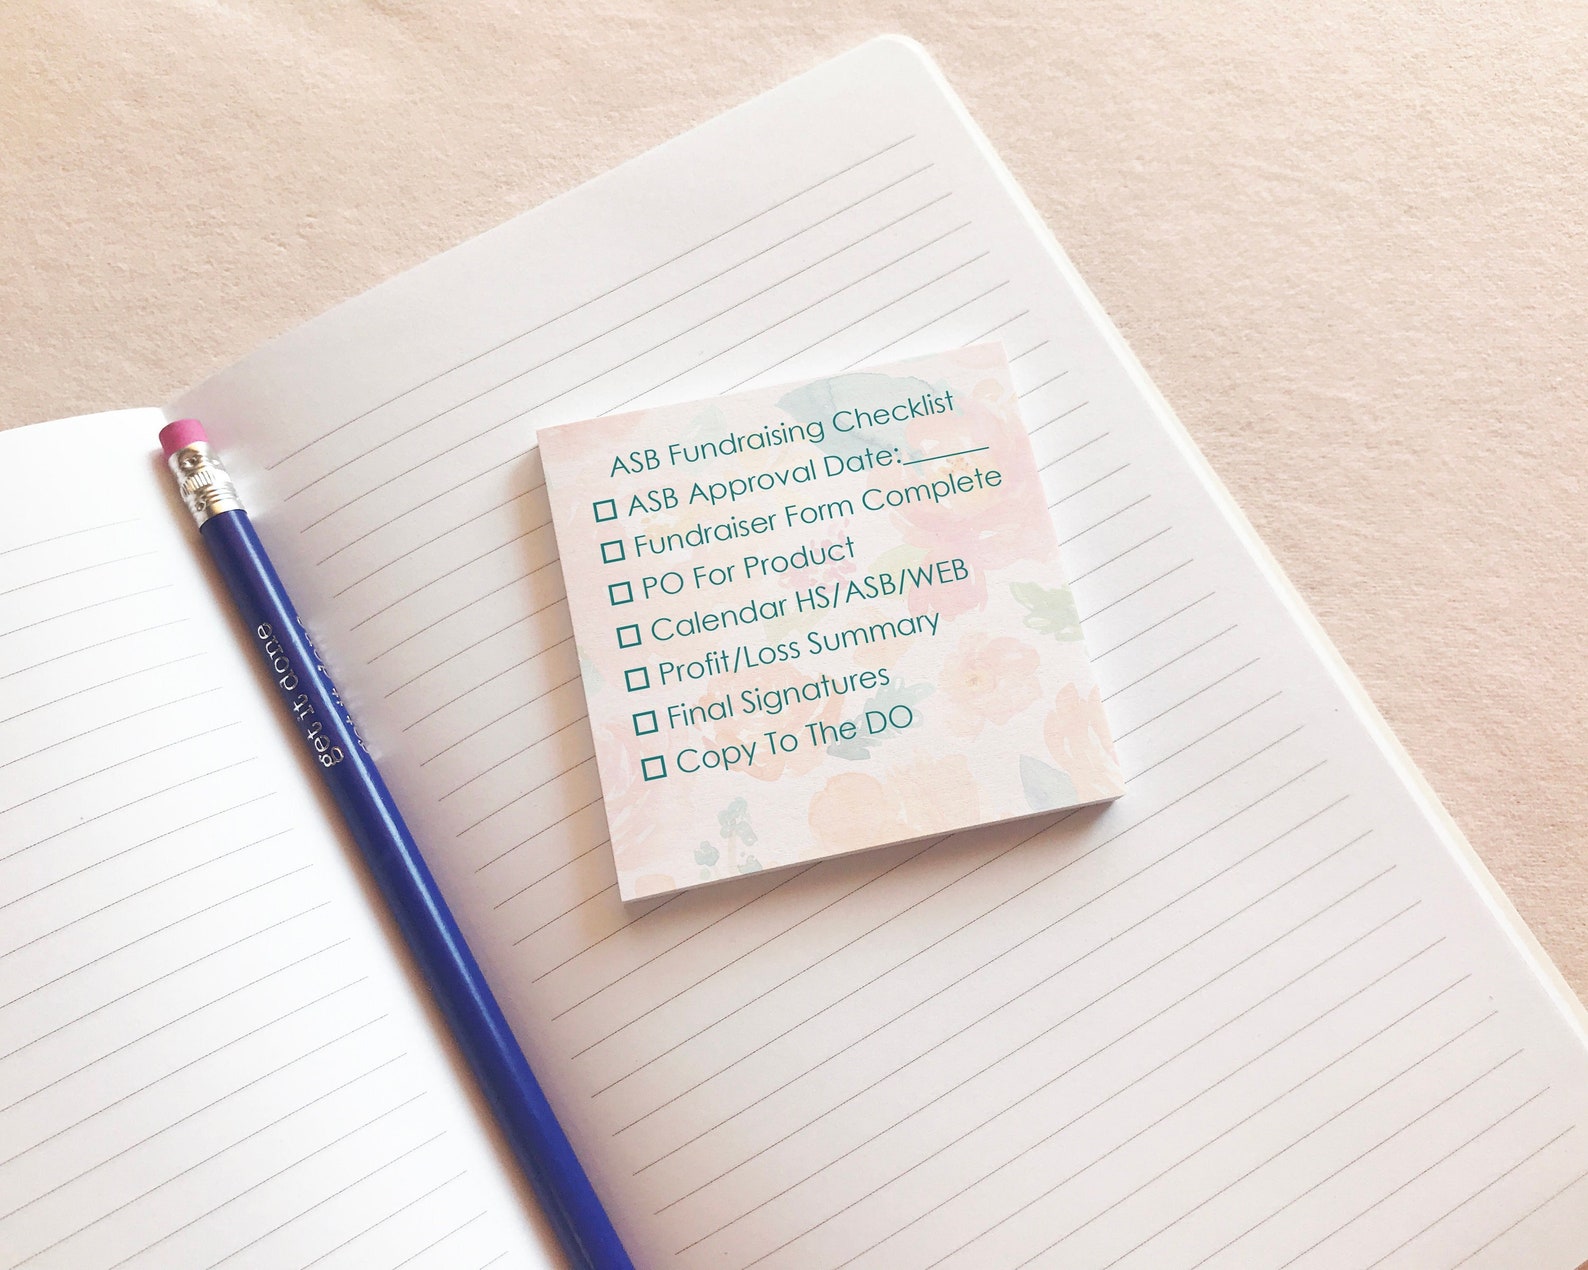 ASB Fundraising Checklist
☐ ASB Approval Date:______
☐ Fundraiser Form Complete
☐ PO For Product
☐ Calendar HS/ASB/WEB
☐ Profit/Loss Summary
☐ Final Signatures
☐ Copy To The DO
get it done